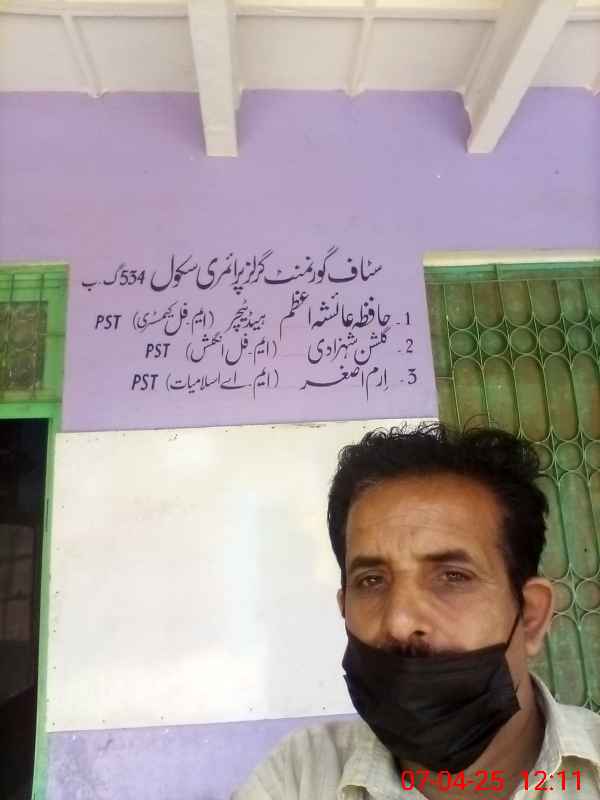 سٹاف گورنمنٹ گرلز پرائمری سکول 534 گ ب
1۔ حافظہ عائشہ اعظم ہیڈ ٹیچر (ایم۔فل کیمسٹری) PST
2۔ گلشن شہزادی (ایم۔فل انگلش) PST
3۔ ارم اصغر (ایم۔اے اسلامیات) PST
07-04-25 12:11